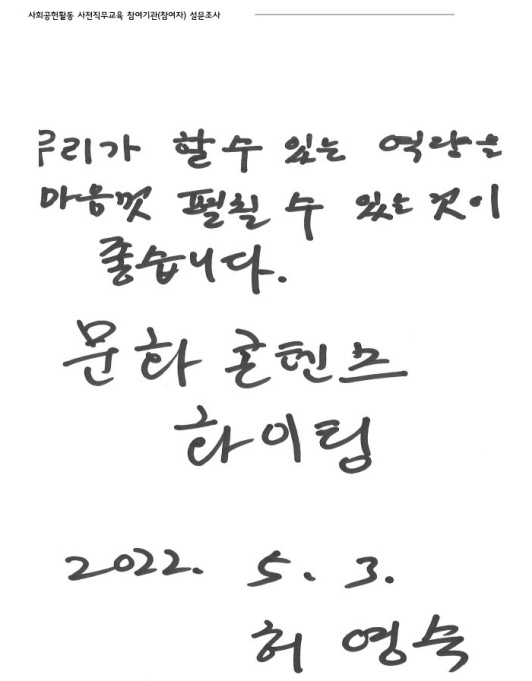 사회공헌활동 사전직무교육 참여기관(참여자) 설문조사
우리가 할 수 있는 역량을
마음껏 펼칠 수 있는 것이
좋습니다.
문화 콘텐츠
화이팅
2022. 5. 3.
허영숙